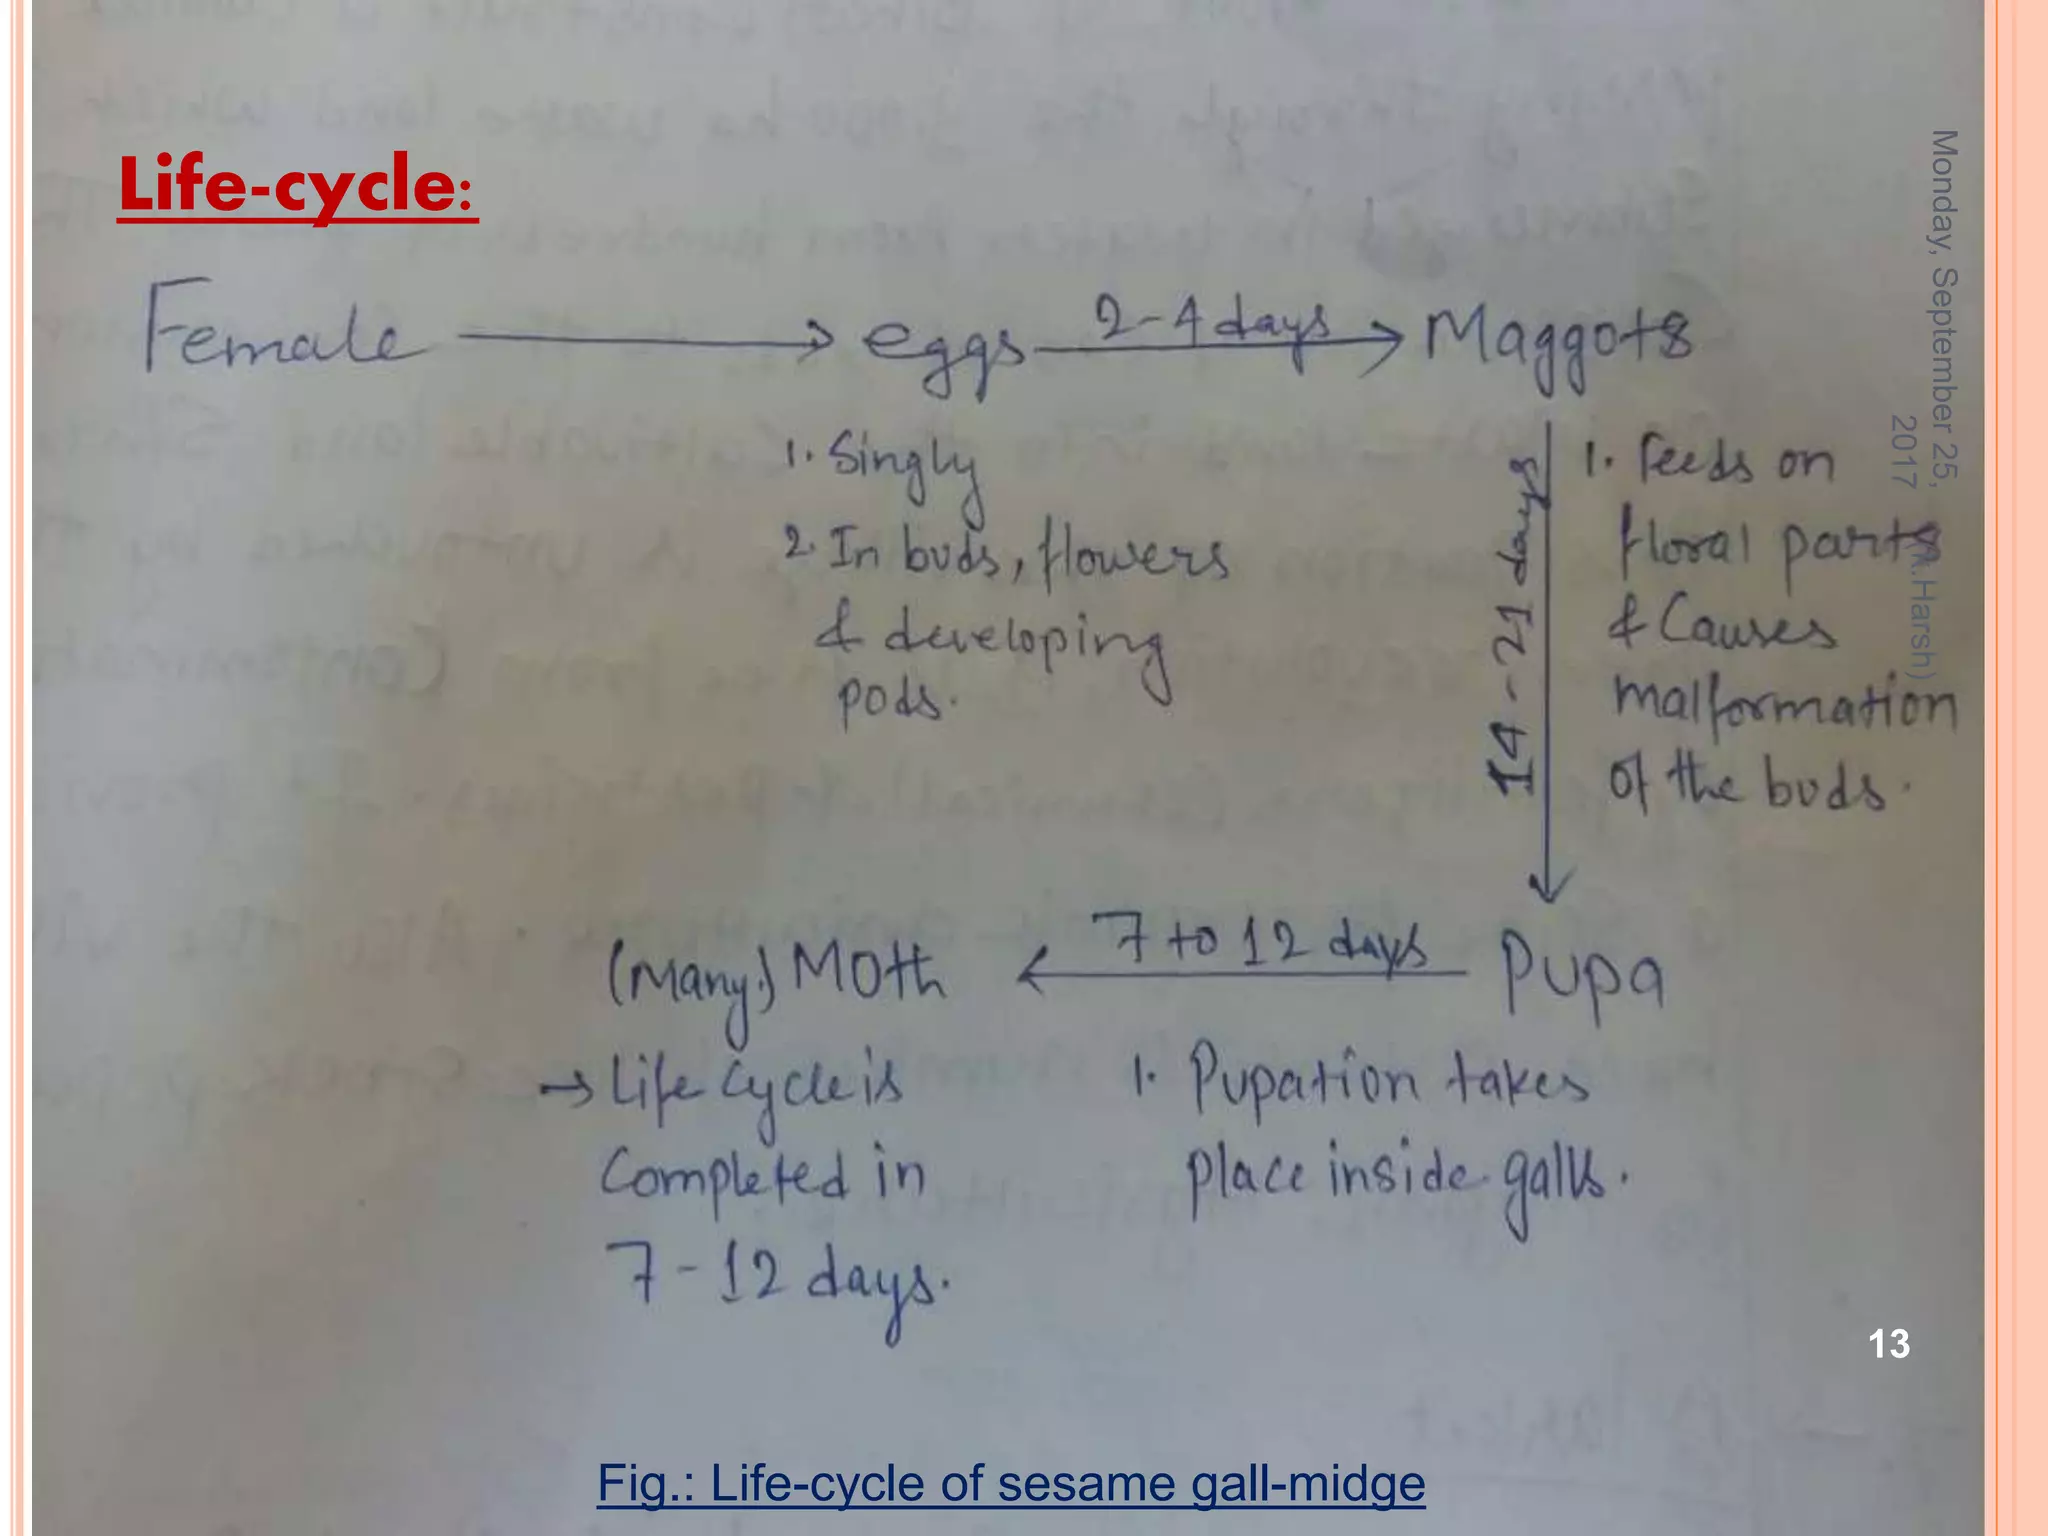 Life-cycle:
Female → eggs 2-4 days → Maggots
1. Singly
2. In buds, flowers
& developing
pods.
14-21 days
1. Feeds on
floral parts
& Causes
malformation
of the buds.
(Many.) Moth ← 7 to 12 days Pupa
→ Life cycle is
Completed in
7-12 days.
1. Pupation takes
place inside galls.
Monday, September 25,
2017
.Harsh)
13
Fig.: Life-cycle of sesame gall-midge